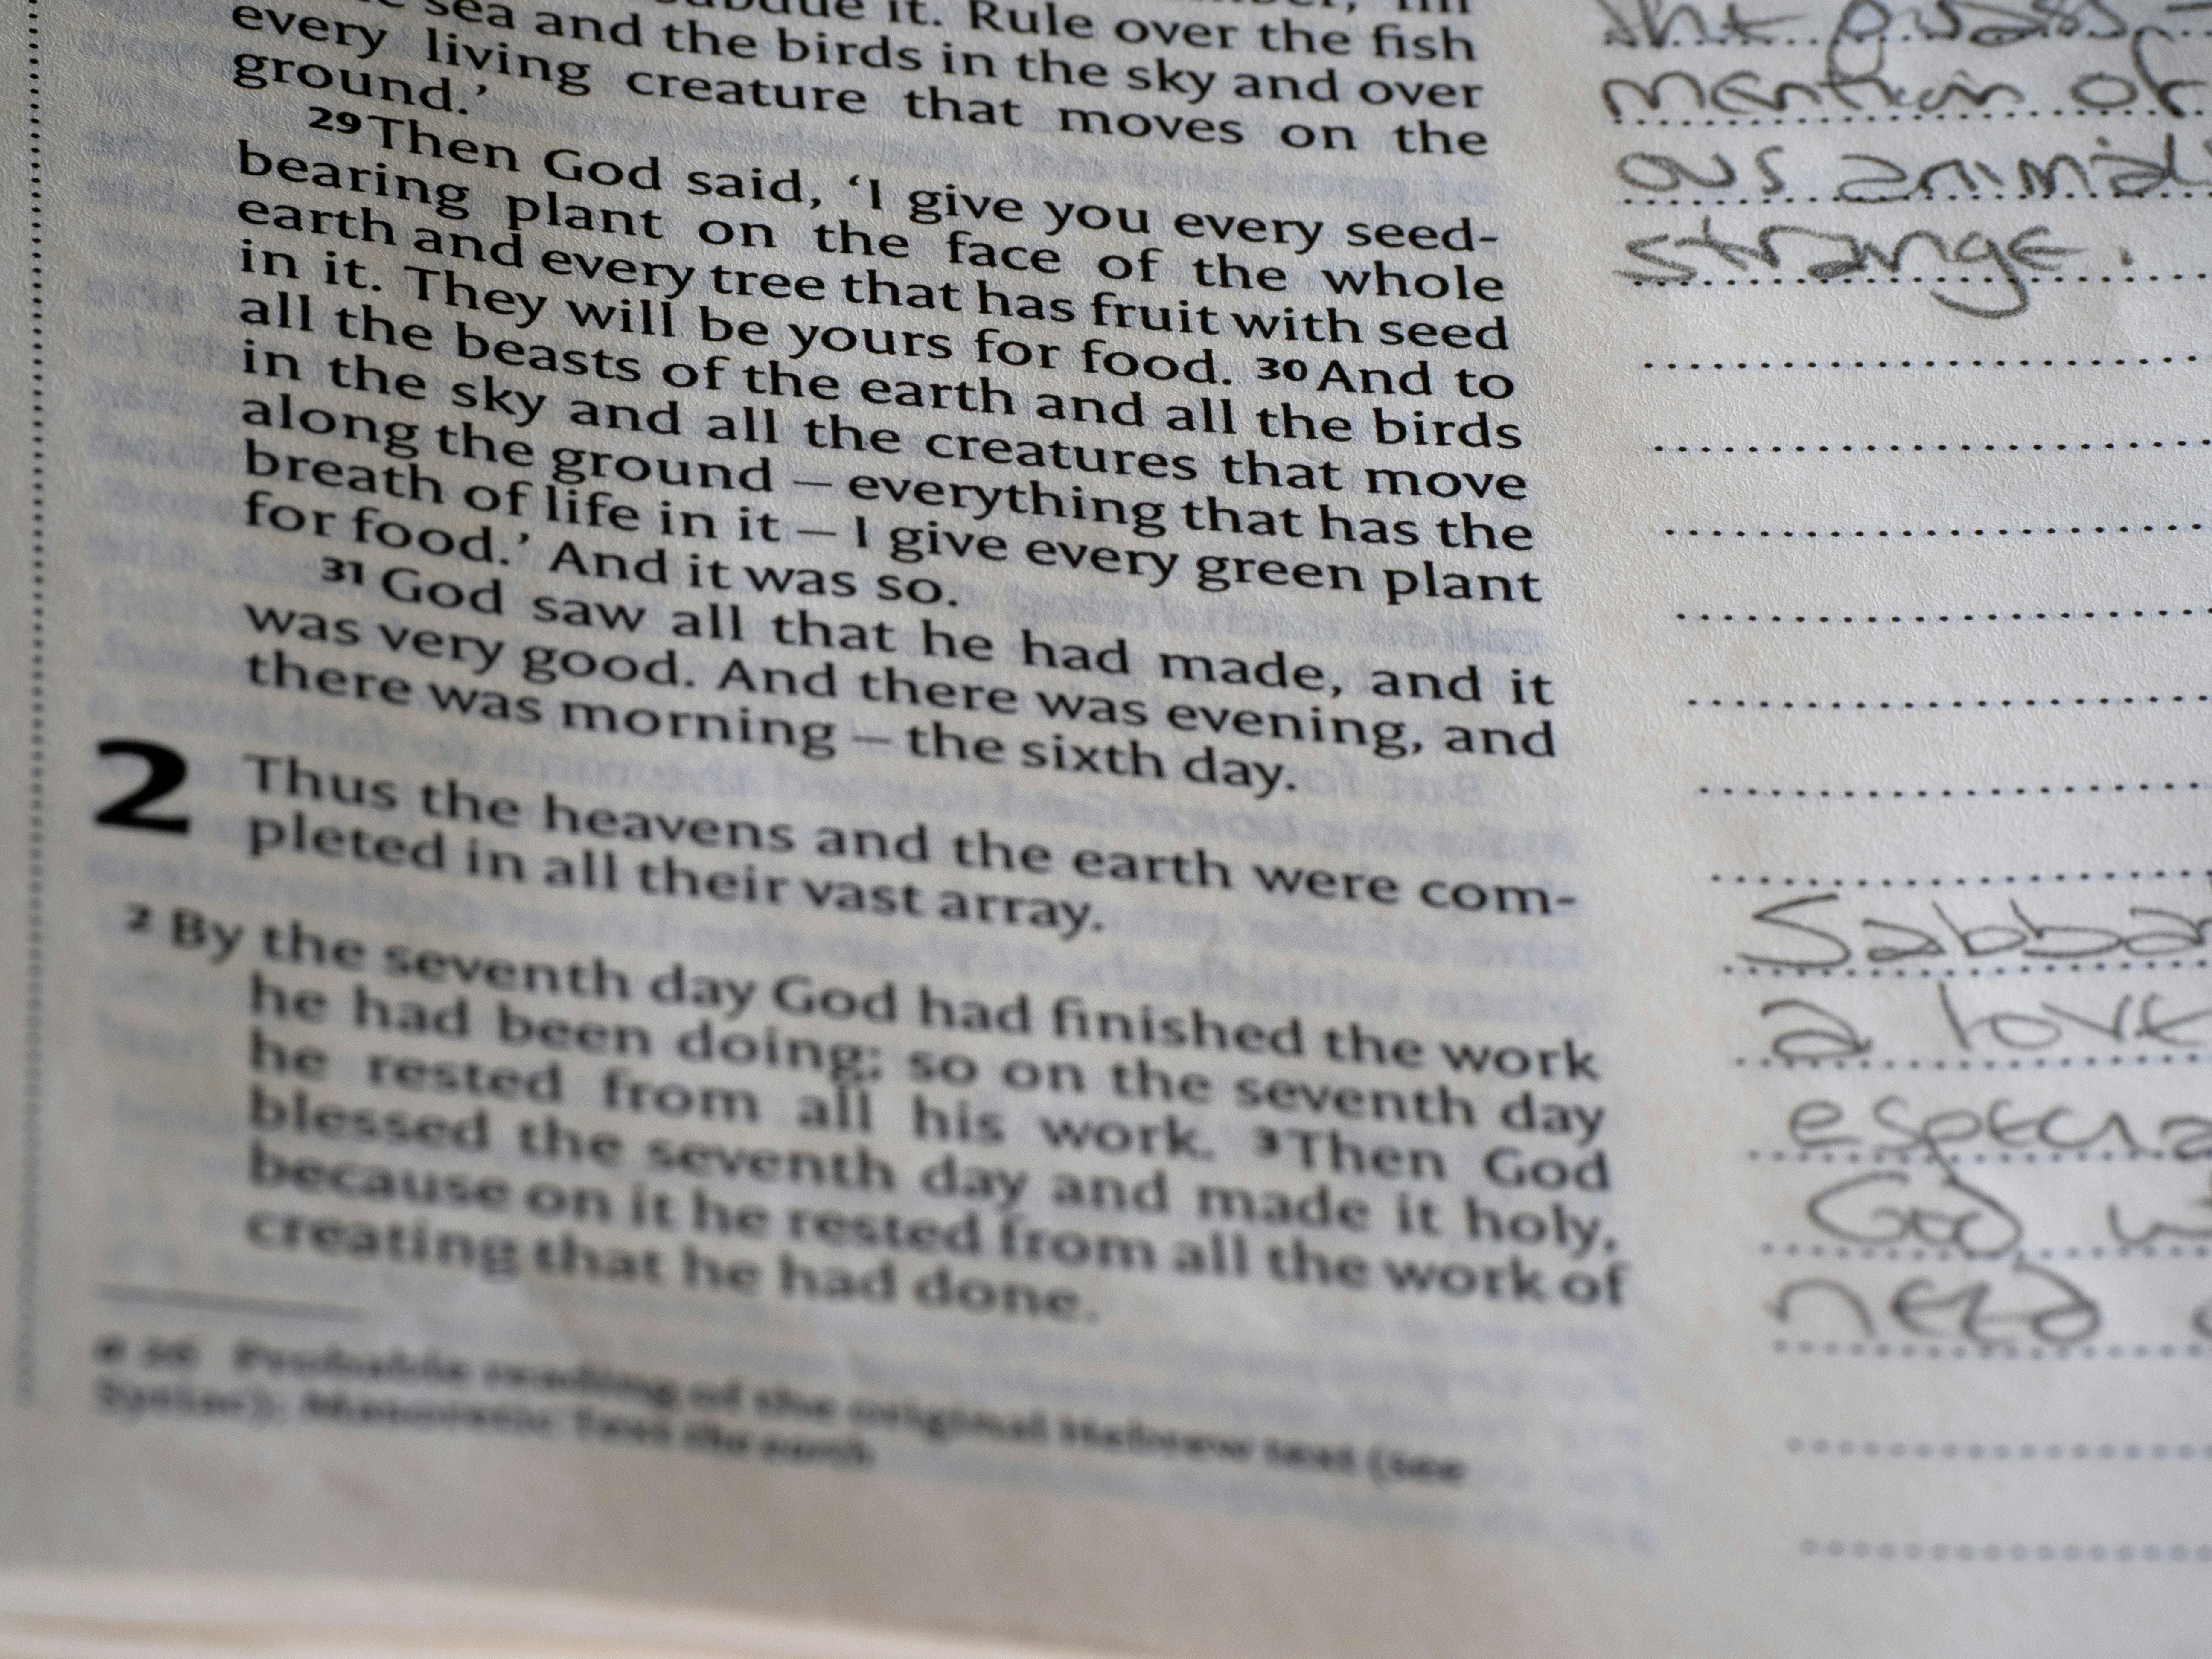 it. Rule over the fish
sea and the birds in the sky and over
every living creature that moves on the
ground.’
29 Then God said, ‘I give you every seed-
bearing plant on the face of the whole
earth and every tree that has fruit with seed
in it. They will be yours for food. 30 And to
all the beasts of the earth and all the birds
in the sky and all the creatures that move
along the ground – everything that has the
breath of life in it – I give every green plant
for food.’ And it was so.
31 God saw all that he had made, and it
was very good. And there was evening, and
there was morning – the sixth day.
2 Thus the heavens and the earth were com-
pleted in all their vast array.
2 By the seventh day God had finished the work
he had been doing; so on the seventh day
he rested from all his work. 3 Then God
blessed the seventh day and made it holy,
because on it he rested from all the work of
creating that he had done.
e 26 Probable reading of the original Hebrew text (see
Syriac); Masoretic Text the earth
mention of
ous animal
strange.
Sabba
a love
especia
God
need